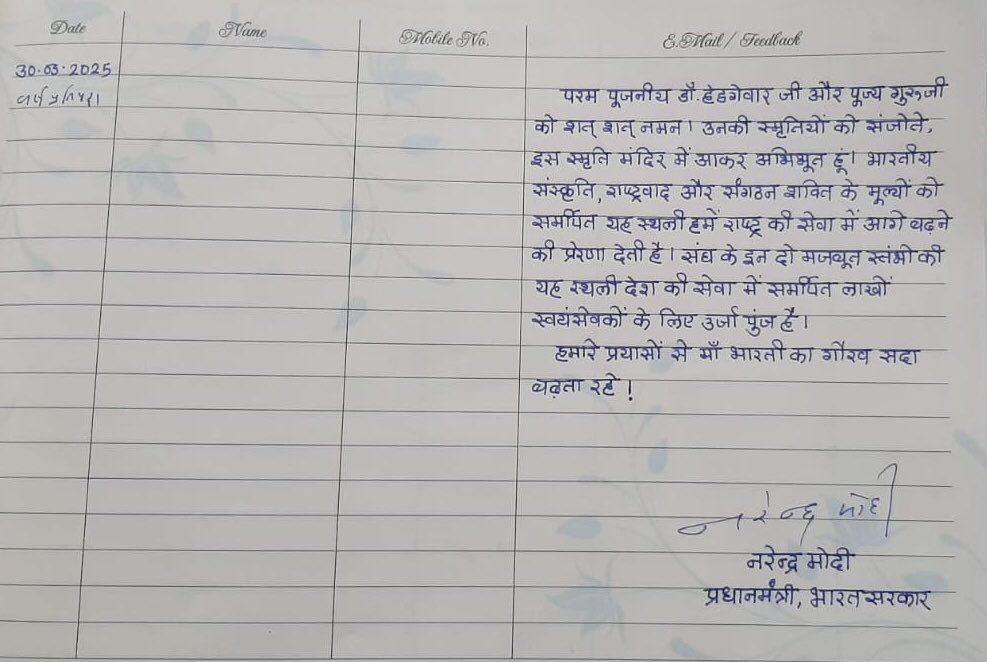 Date Name Mobile No. E.Mail / Feedback
30.03.2025
वर्ष प्रतिपदा
परम पूजनीय डॉ. हेडगेवार जी और पूज्य गुरुजी
को शत् शत् नमन। उनकी स्मृतियों को संजोते,
इस स्मृति मंदिर में आकर अभिभूत हूं। भारतीय
संस्कृति, राष्ट्रवाद और संगठन शक्ति के मूल्यों को
समर्पित यह स्थली हमें राष्ट्र की सेवा में आगे बढ़ने
की प्रेरणा देती है। संघ के इन दो मजबूत स्तंभों की
यह स्थली देश की सेवा में समर्पित लाखों
स्वयंसेवकों के लिए उर्जा पुंज है।
हमारे प्रयासों से माँ भारती का गौरव सदा
बढ़ता रहे!
नरेन्द्र मोदी
नरेन्द्र मोदी
प्रधानमंत्री, भारत सरकार